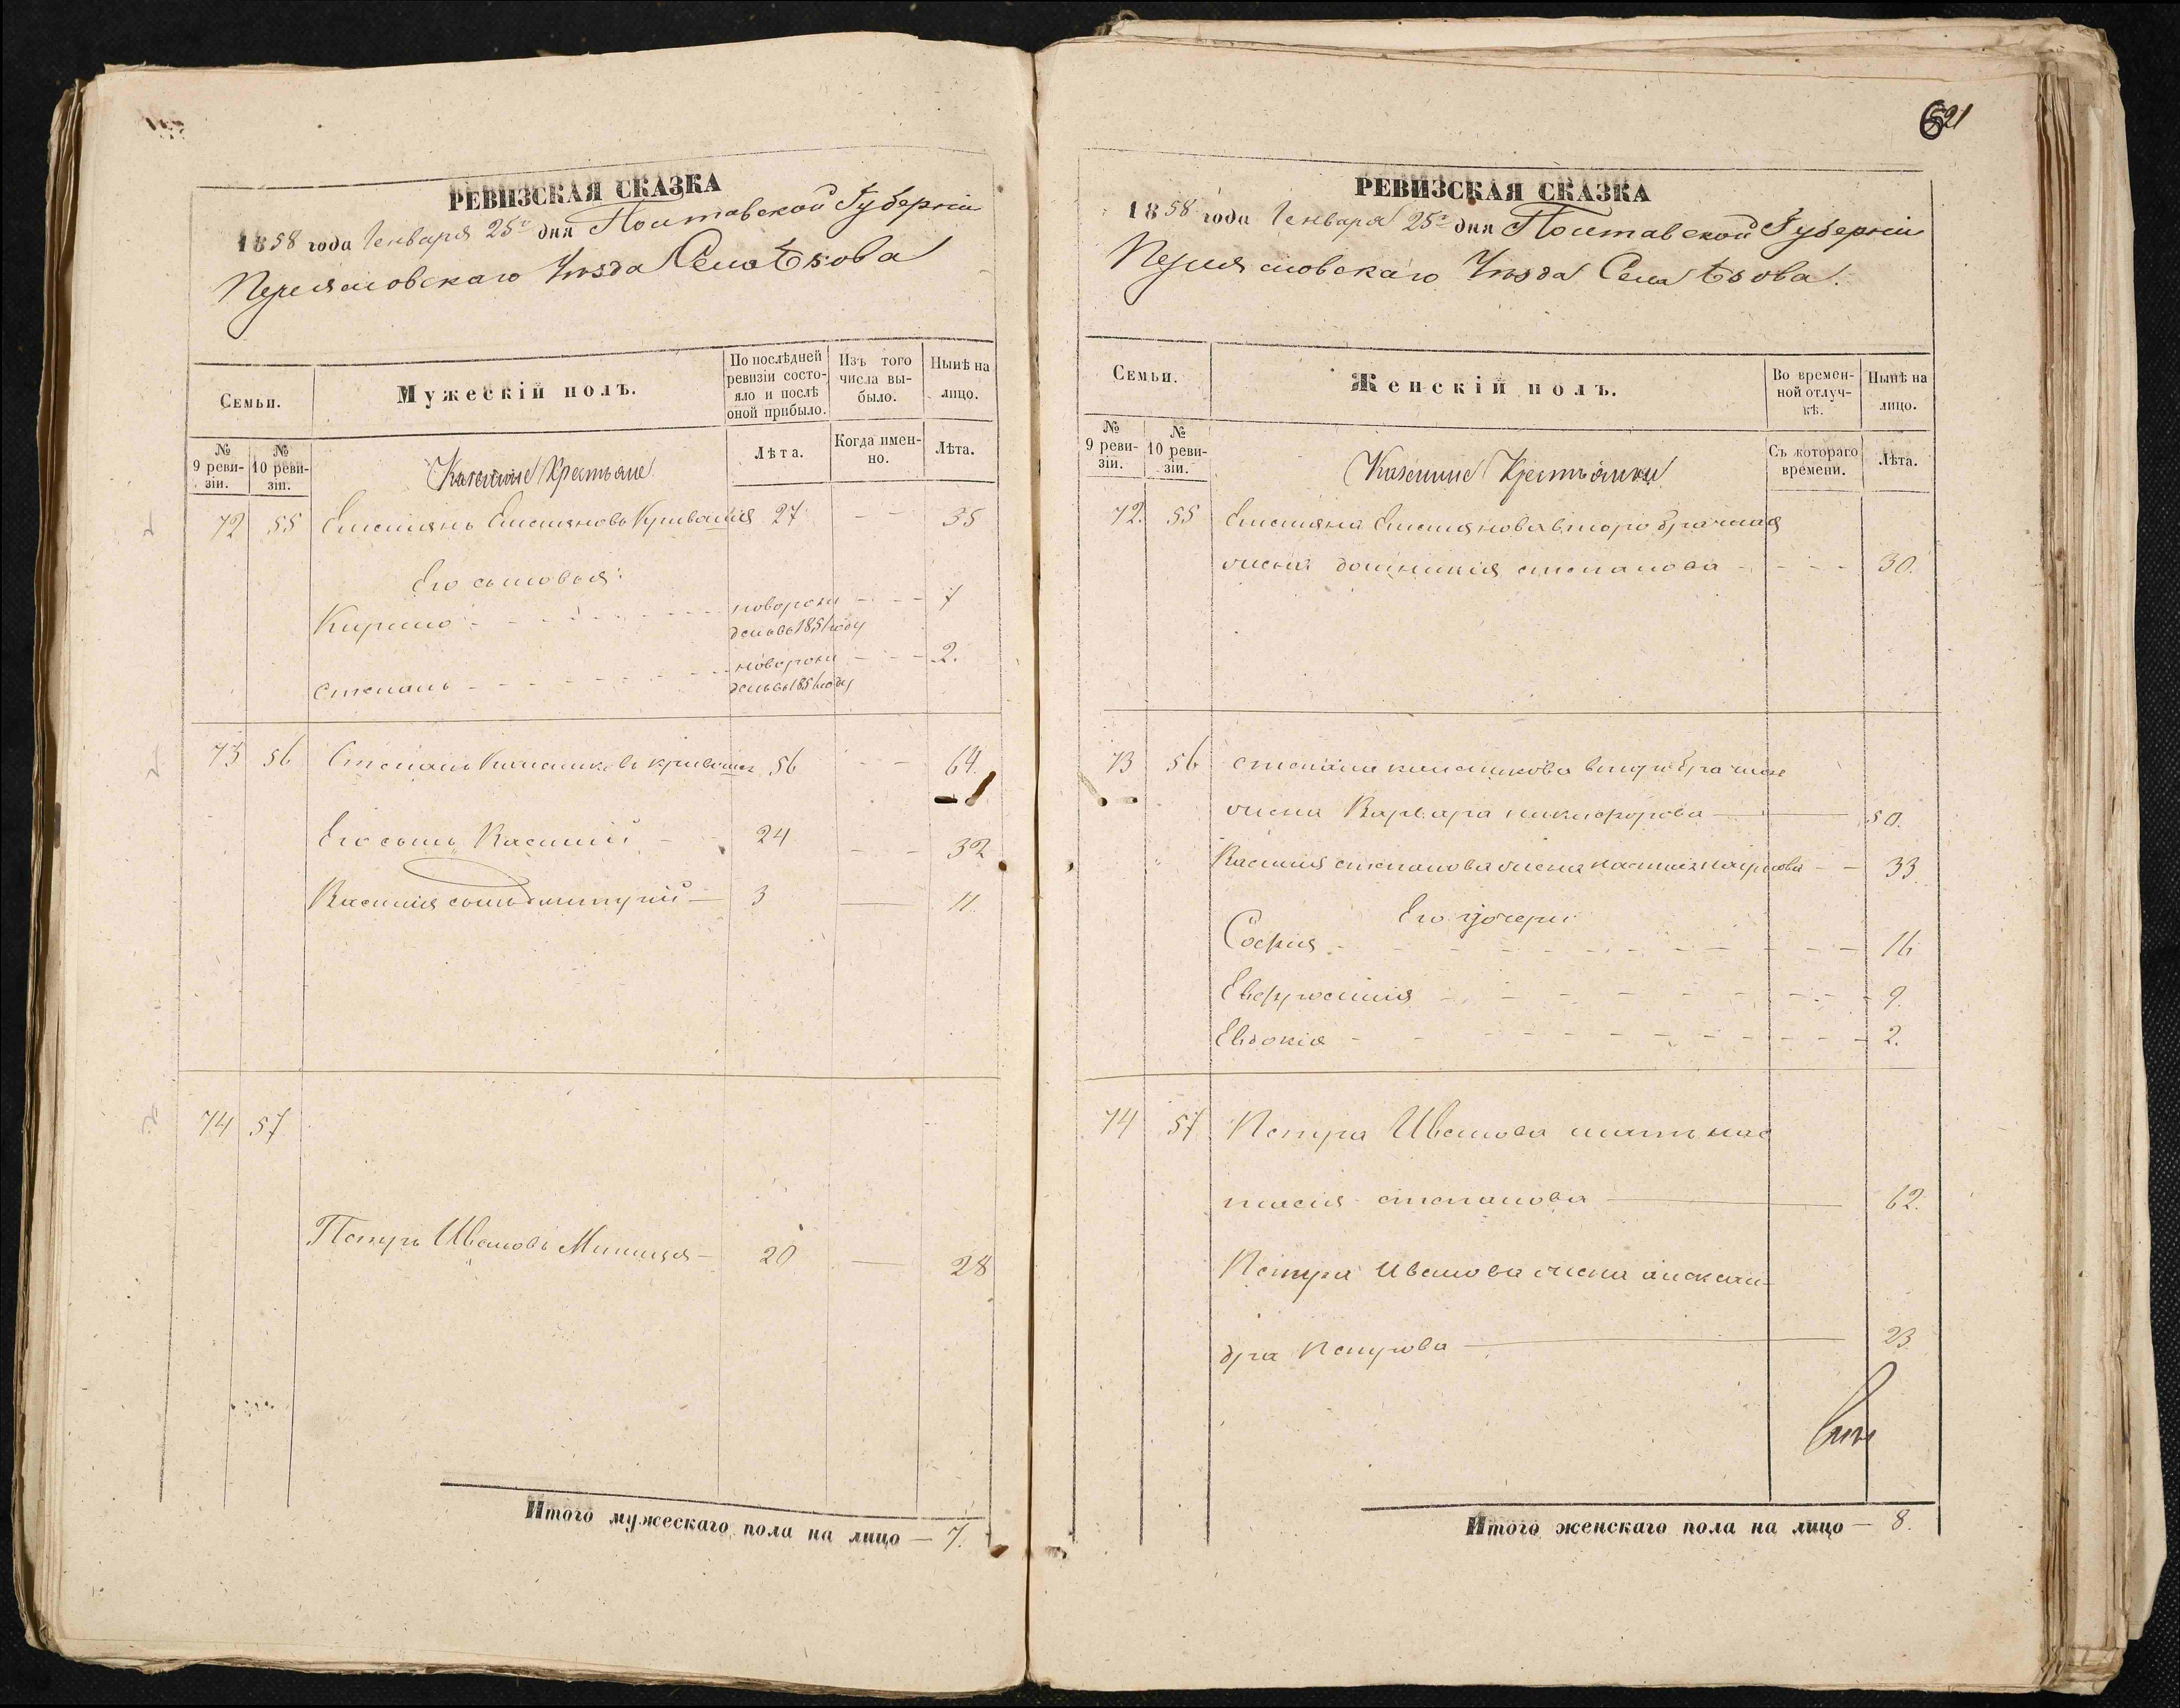 РЕВИЗСКАЯ СКАЗКА
1858 года Генваря 25го дня Полтавской Губернiи
Переяславскаго Уезда Села Ѣзова
Семьи.
Мужескiй полъ.
По послѣдней ревизiи состояло и послѣ оной прибыло.
Изъ того числа выбыло.
Нынѣ на лицо.
№ 9 ревизiи.
№ 10 ревизiи.
Казенные Крестьяне
Лѣта.
Когда именно.
Лѣта.
72 55 Емелианъ Емелиановъ 27 - - 35
Его сыновья:
Кирило - - - новорожденъ въ 1851 году - - 7
Степанъ - - - новорожденъ въ году - - 2.
73 56 Степанъ 56 - - 64.
Его сынъ Василий - 24 - - 32
Василия сынъ Димитрий - 3 — 11.
74 57
Петръ Ивановъ - 20 — 28
Итого мужескаго пола на лицо — 7.
621
РЕВИЗСКАЯ СКАЗКА
1858 года Генваря 25го дня Полтавской Губернiи
Переяславскаго Уезда Села Ѣзова.
Семьи.
Женскiй полъ.
Во временной отлучкѣ.
Нынѣ на лицо.
№ 9 ревизiи.
№ 10 ревизiи.
Казенные Крестьянки
Съ котораго времени.
Лѣта.
72. 55 Емелиана Емелианова второбрачная
жена домникия степанова - - - 30.
73 56 степана второбрачная
жена Варвара никифорова — 50.
Василия степанова жена - - 33
Его дочери
София - - - 16
Евфросиния - - - 9.
Евдокiя - - - 2.
74 57 Петра Иванова мать нас
тасия степанова — 62.
Петра Иванова жена алексан-
дра Петрова — 23
Итого женскаго пола на лицо — 8.